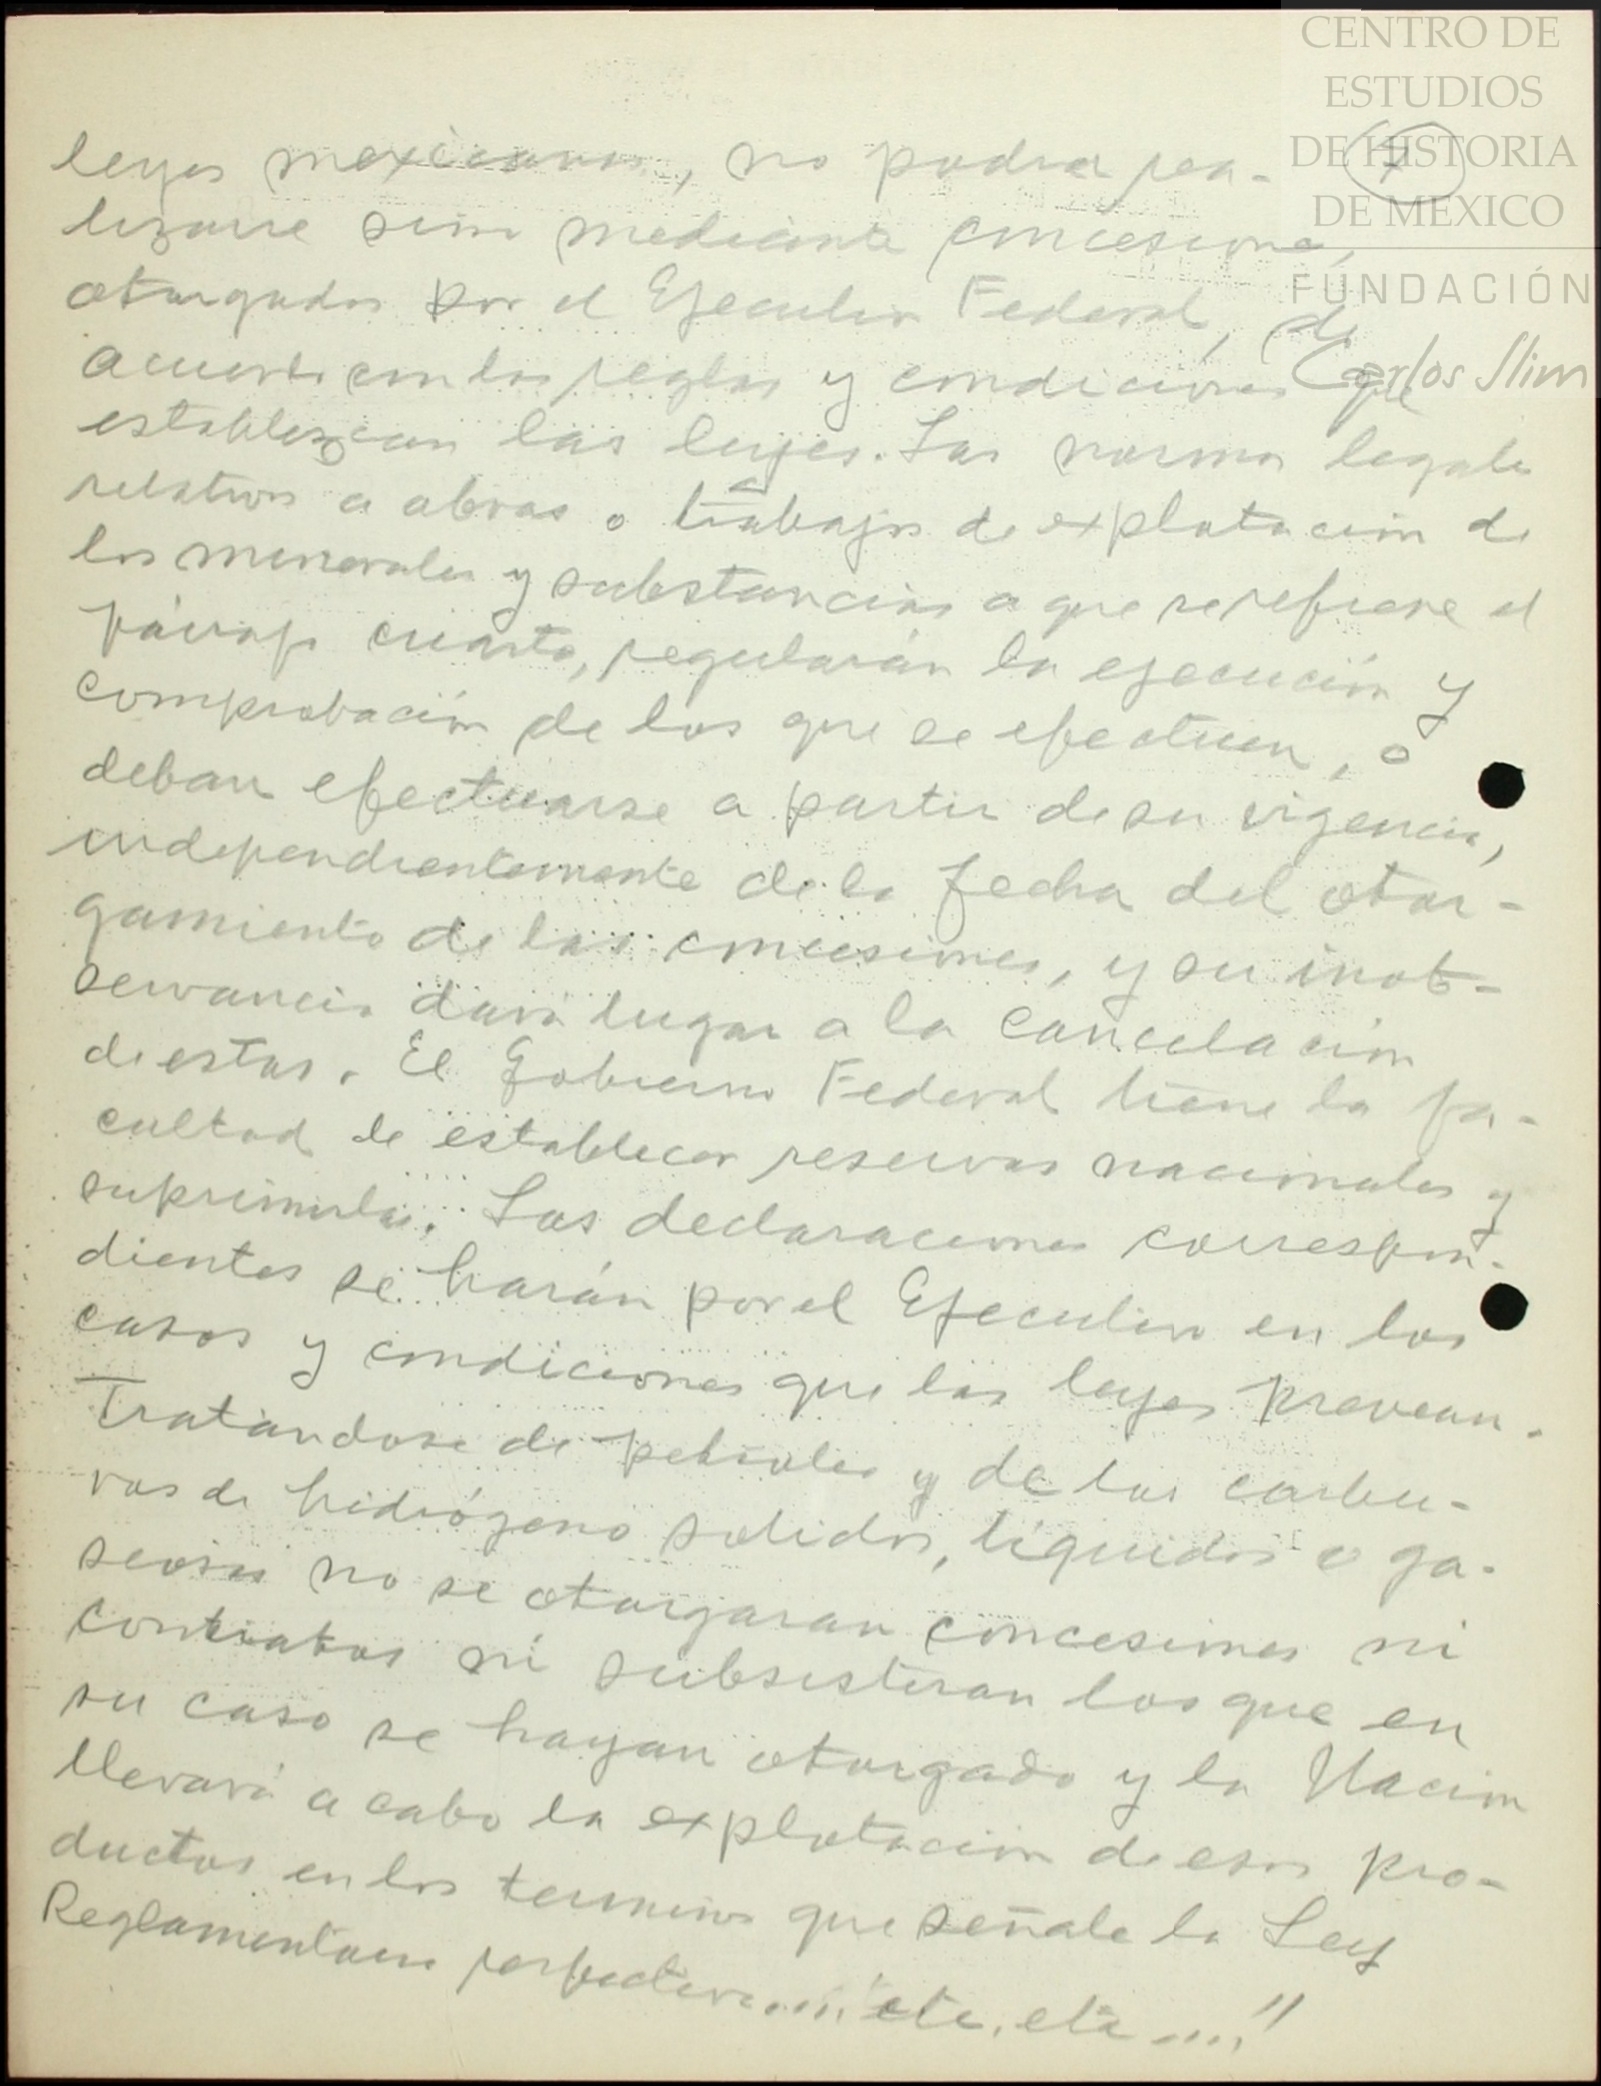 CENTRO DE
ESTUDIOS
DE HISTORIA
DE MEXICO
FUNDACIÓN
Carlos Slim
7
leyes mexicanas, no podra rea-
lizarse sino mediante concesiones,
otorgadas por el Ejecutivo Federal, de
acuerdo con las reglas y condiciones que
establezcan las leyes. Las normas legales
relativas a obras o trabajos de explotación de
los minerales y substancias a que se refiere el
párrafo cuarto, regularán la ejecución y
comprobación de los que se efectuen, o
deban efectuarse a partir de su vigencia,
independientemente de la fecha del otor-
gamiento de las concesiones, y su inob-
servancia dará lugar a la cancelación
de estas. El Gobierno Federal tiene la fa-
cultad de establecer reservas nacionales y
suprimirlas. Las declaraciones correspon-
dientes se harán por el Ejecutivo en los
casos y condiciones que las leyes prevean.
Tratandose de petroleo y de los carbu-
ros de hidrógeno solidos, líquidos o ga-
seosos no se otorgaran concesiones ni
contratos ni subsistiran los que en
su caso se hayan otorgado y la Nacion
llevará a cabo la explotación de esos pro-
ductos en los terminos que señale la Ley
Reglamentaria respectiva....." etc. etc ....."